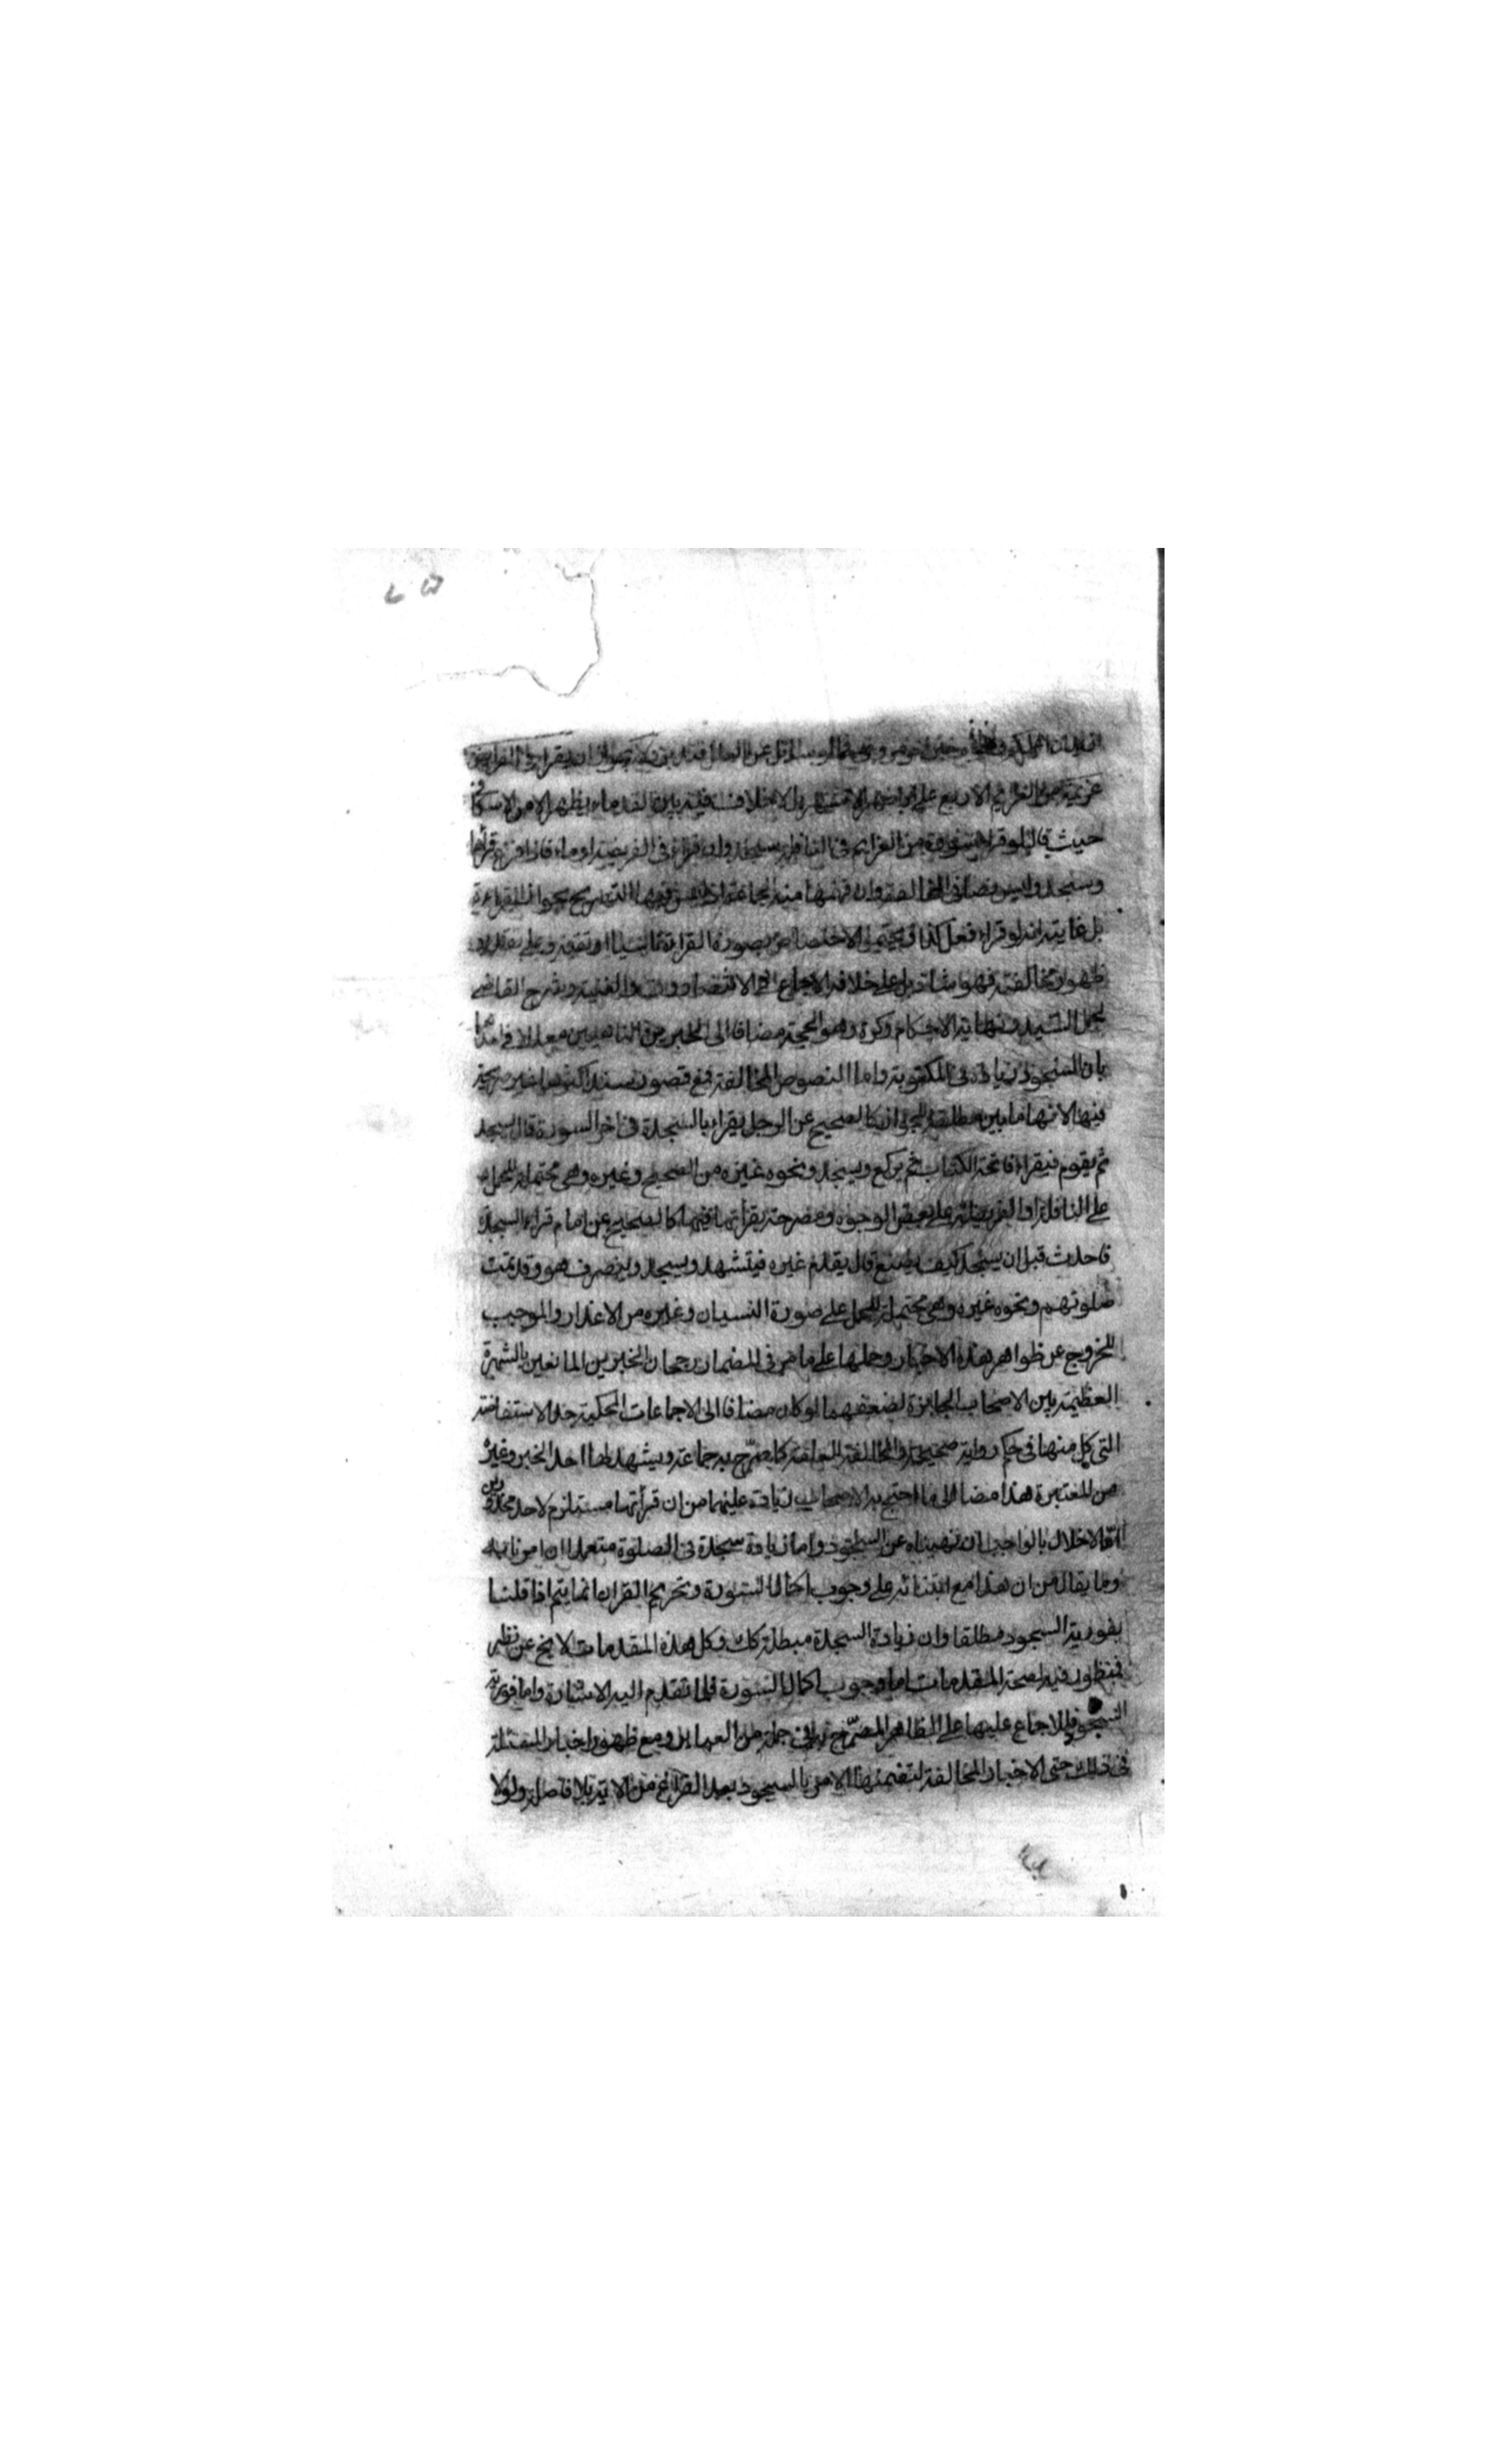 عزيمة من العزائم الأربع على الاشهر بل لا خلاف فيه بين القدماء يظهر الا من الاسكافي
حيث قال لو قراء سورة من العزايم فى النافلة سجد وان قراء فى الفريضة اوماء فاذا فرغ قرأها
وسجد وليس نصا فى المخالفة وان فهمها منه الجماعة اذ ليس فيها التصريح بجواز القراءة
بل غايته انه لو قراء فعل كذا ويحتمل الاختصاص بصورة القراءة ناسيا او تقية وعلى تقدير
ظهور مخالفته فهو شاذ بل على خلافه الاجماع فى الانتصار وف والغنية وشرح القاضى
لجمل السيد ونهاية الاحكام وكرة وهو الحجة مضافا الى الخبرين الناهيين معللا فى احدهما
بان السجود زيادة فى المكتوبة واما النصوص المخالفة فمع قصور سند اكثرها غير صريحة
فيها لانها ما بين مطلقة للجواز كالصحيح عن الرجل يقراء بالسجدة فى اخر السورة قال يسجد
ثم يقوم فيقراء فاتحة الكتاب ثم يركع ويسجد ونحوه غيره من الصحيح وغيره وهى محتملة للحمل
على النافلة او الفريضة على بعض الوجوه ومصرحة بقرأتها فيها كالصحيح عن امام قراء السجدة
فاحدث قبل ان يسجد كيف يصنع قال يقدم غيره فيتشهد ويسجد وينصرف هو وقد تمت
صلوتهم ونحوه غيره وهى محتملة للحمل على صورة النسيان وغيره من الاعذار والموجب
للخروج عن ظواهر هذه الاخبار وحملها على ما مر فى المضمار رجحان الخبرين المانعين بالشهرة
العظيمة بين الاصحاب الجابرة لضعفهما لو كان مضافا الى الاجماعات المحكية حد الاستفاضة
التى كل منها فى حكم رواية صحيحة والمخالفة للعامة كما صرّح به جماعة ويشهد لها احد الخبر وغيره
من المعتبرة هذا مضافا الى ما احتج به الاصحاب زيادة عليهما من ان قرأتها مستلزم لاحد محذورين
اما الاخلال بالواجب ان نهيناه عن السجود واما زيادة سجدة فى الصلوة متعمدا ان امرناه به
وما يقال من ان هذا مع ابتنائه على وجوب اكمال السورة وتحريم القران انما يتم اذا قلنا
بفورية السجود مطلقا وان زيادة السجدة مبطلة كك وكل هذه المقدمات لا يخ عن نظر
فمنظور فيه لصحة المقدمات اما وجوب اكمال السورة فلما تقدم اليه الاشارة واما فورية
السجود فللاجماع عليها على الظاهر المصرّح به فى جملة من العبائر ومع ظهور اخبار المسئلة
فى ذلك حتى الاخبار المخالفة لتضمنها الامر بالسجود بعد الفراغ من الاية بلا فاصلة ولولا